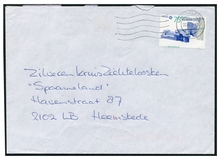 Zilveren kruis Ziektekosten
"Spaarneland"
Havenstraat 87
2102 LB Heemstede